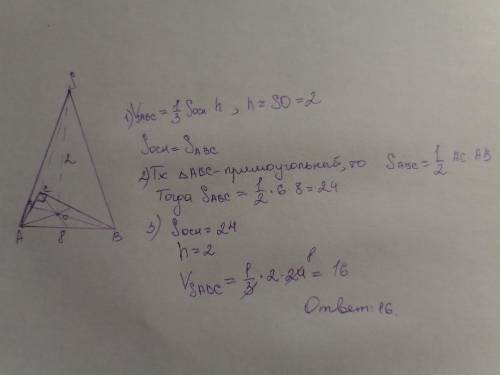 S
2
C
O
A
8
B
1) V_SABC = 1/3 Sосн h , h = SO = 2
Sосн = S_ABC
2) Тк △ABC - прямоугольный, то S_ABC = 1/2 AC AB
Тогда S_ABC = 1/2 · 6 8 = 24
3) Sосн = 24
h = 2
V_SABC = 1/3 · 2 · 24 = 16
Ответ: 16.